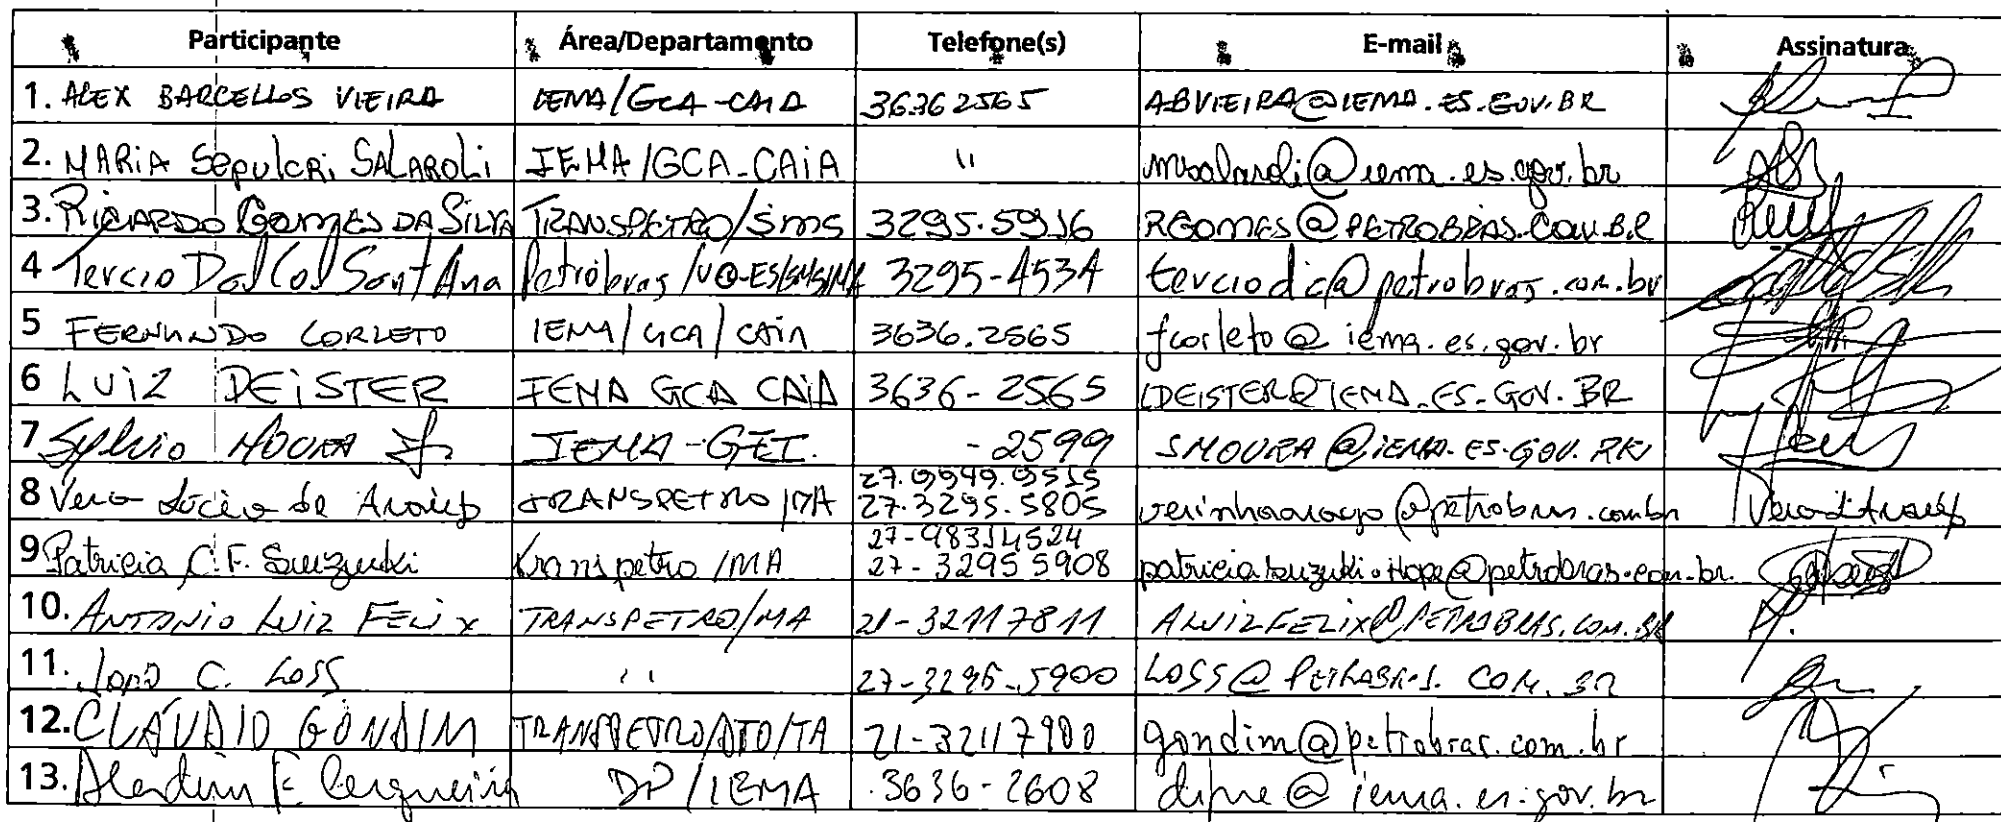 Participante Área/Departamento Telefone(s) E-mail Assinatura
1. ALEX BARCELLOS VIEIRA IEMA/GCA-CAIA 3636 2565 ABVIEIRA@IEMA.ES.GOV.BR
2. MARIA Sepulcri SALAROLI IEMA/GCA-CAIA " msalaroli@iema.es.gov.br
3. RICARDO GOMES DA SILVA TRANSPETRO/SMS 3295.5916 RGOMES@PETROBRAS.COM.BR
4 Tercio Dal Col Sant'Ana Petrobras 3295-4534 terciodc@petrobras.com.br
5 FERNANDO CORLETO IEMA/GCA/CAIA 3636.2565 fcorleto@iema.es.gov.br
6 LUIZ DEISTER IEMA GCA CAIA 3636-2565 LDEISTER@IEMA.ES.GOV.BR
7 Sylvio MOURA Jr. IEMA-GFI. -2599 SMOURA@IEMA.ES.GOV.
27.9949.9515
8 Vera Lúcia de Araújo TRANSPETRO/MA 27.3295.5805 verinhaaraujo@petrobras.com.br
27-98314524
9 Patricia C.F. Suuzuki Transpetro/MA 27-3295 5908 patriciasuzuki.Hope@petrobras.com.br.
10. ANTONIO LUIZ FELIX TRANSPETRO/MA 21-32117811 ALUIZFELIX@PETROBRAS.COM.BR
11. JOÃO C. LOSS " 27-3295-5900 LOSS@PETROBRAS.COM.BR
12. CLÁUDIO GONDIM TRANSPETRO/DTO/TA 21-32117900 gondim@petrobras.com.br
13. F. Cerqueira DP/IEMA 3636-2608 @iema.es.gov.br